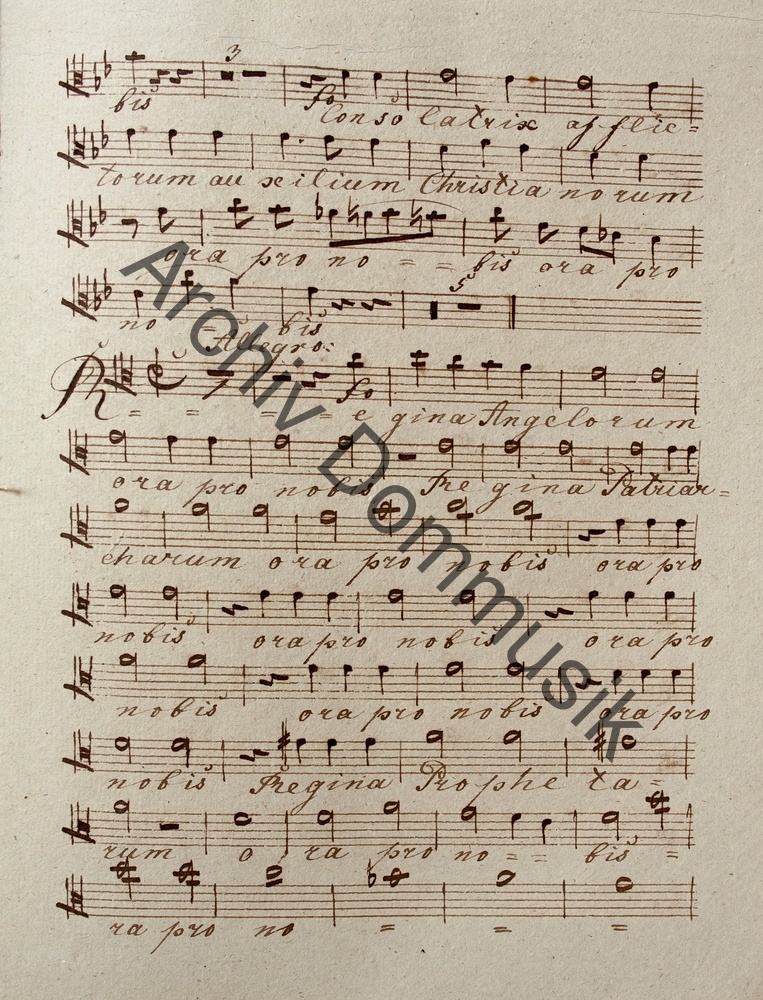 3
bis fo Conso latrix afflic=
torum au xilium Christia norum
ora pro no = = bis ora pro
5
no = bis
Allegro:
fo
R = = = = e gina Angelorum
ora pro nobis Re gina Patriar=
charum ora pro nobis ora pro
nobis ora pro nobis ora pro
nobis ora pro nobis ora pro
nobis Regina Prophe ta=
rum o ra pro no = = bis =
ra pro no = = =
Archiv Dommusik